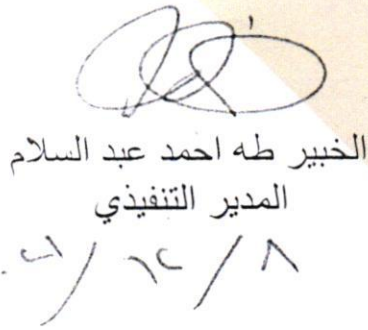 الخبير طه احمد عبد السلام
المدير التنفيذي
٨ / ١٢ /